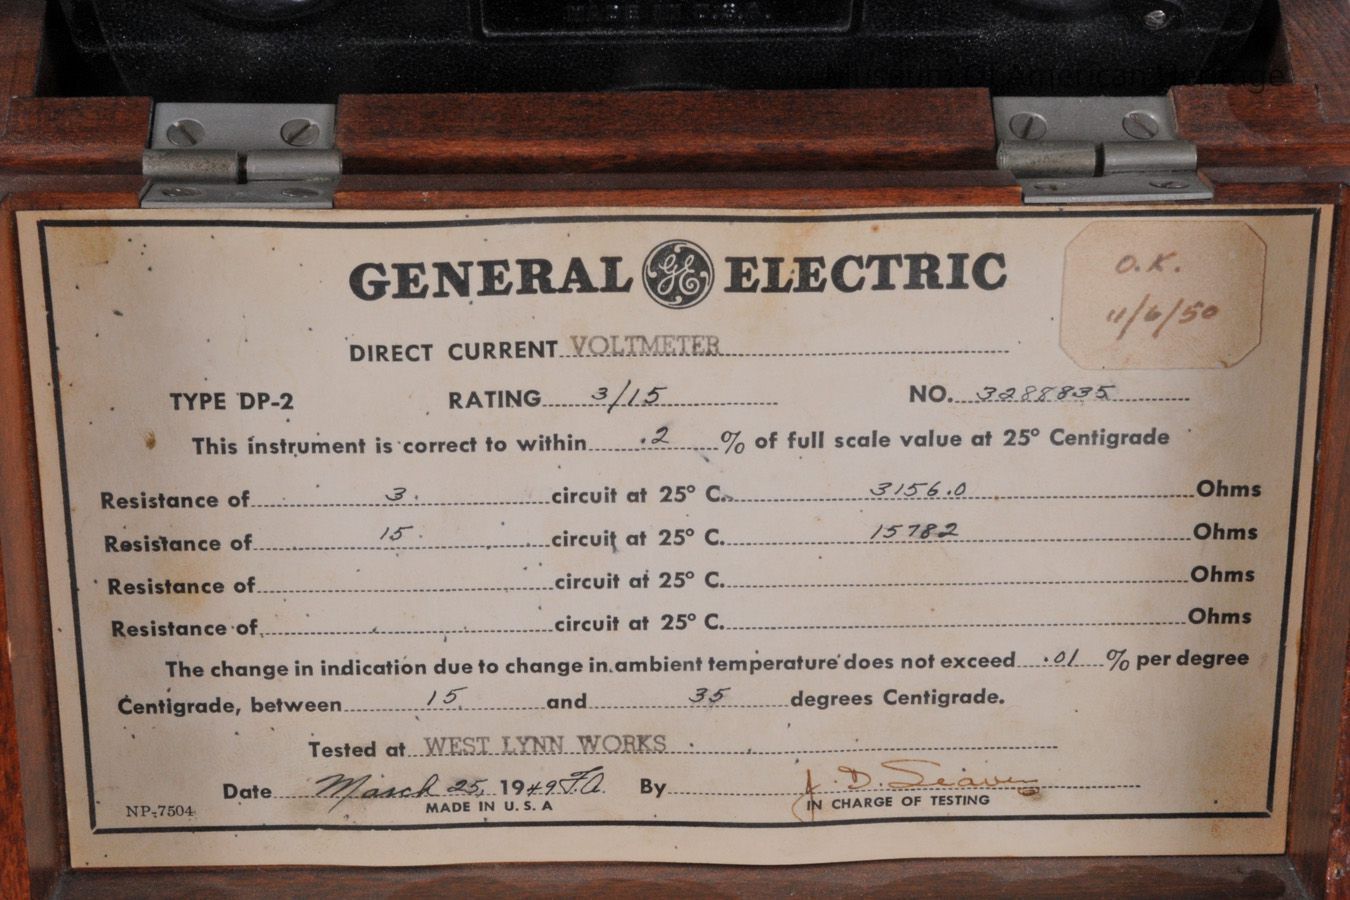 MADE IN U.S.A.
Museum of American Heritage
GENERAL GE ELECTRIC
O.K.
11/6/50
DIRECT CURRENT VOLTMETER
TYPE DP-2 RATING 3/15 NO. 3288835
This instrument is correct to within .2 % of full scale value at 25° Centigrade
Resistance of 3. circuit at 25° C. 3156.0 Ohms
Resistance of 15. circuit at 25° C. 15782 Ohms
Resistance of circuit at 25° C. Ohms
Resistance of circuit at 25° C. Ohms
The change in indication due to change in ambient temperature does not exceed .01 % per degree
Centigrade, between 15 and 35 degrees Centigrade.
Tested at WEST LYNN WORKS
Date March 25, 1949 F.A. By J. D. Seaver
NP-7504 MADE IN U. S. A IN CHARGE OF TESTING